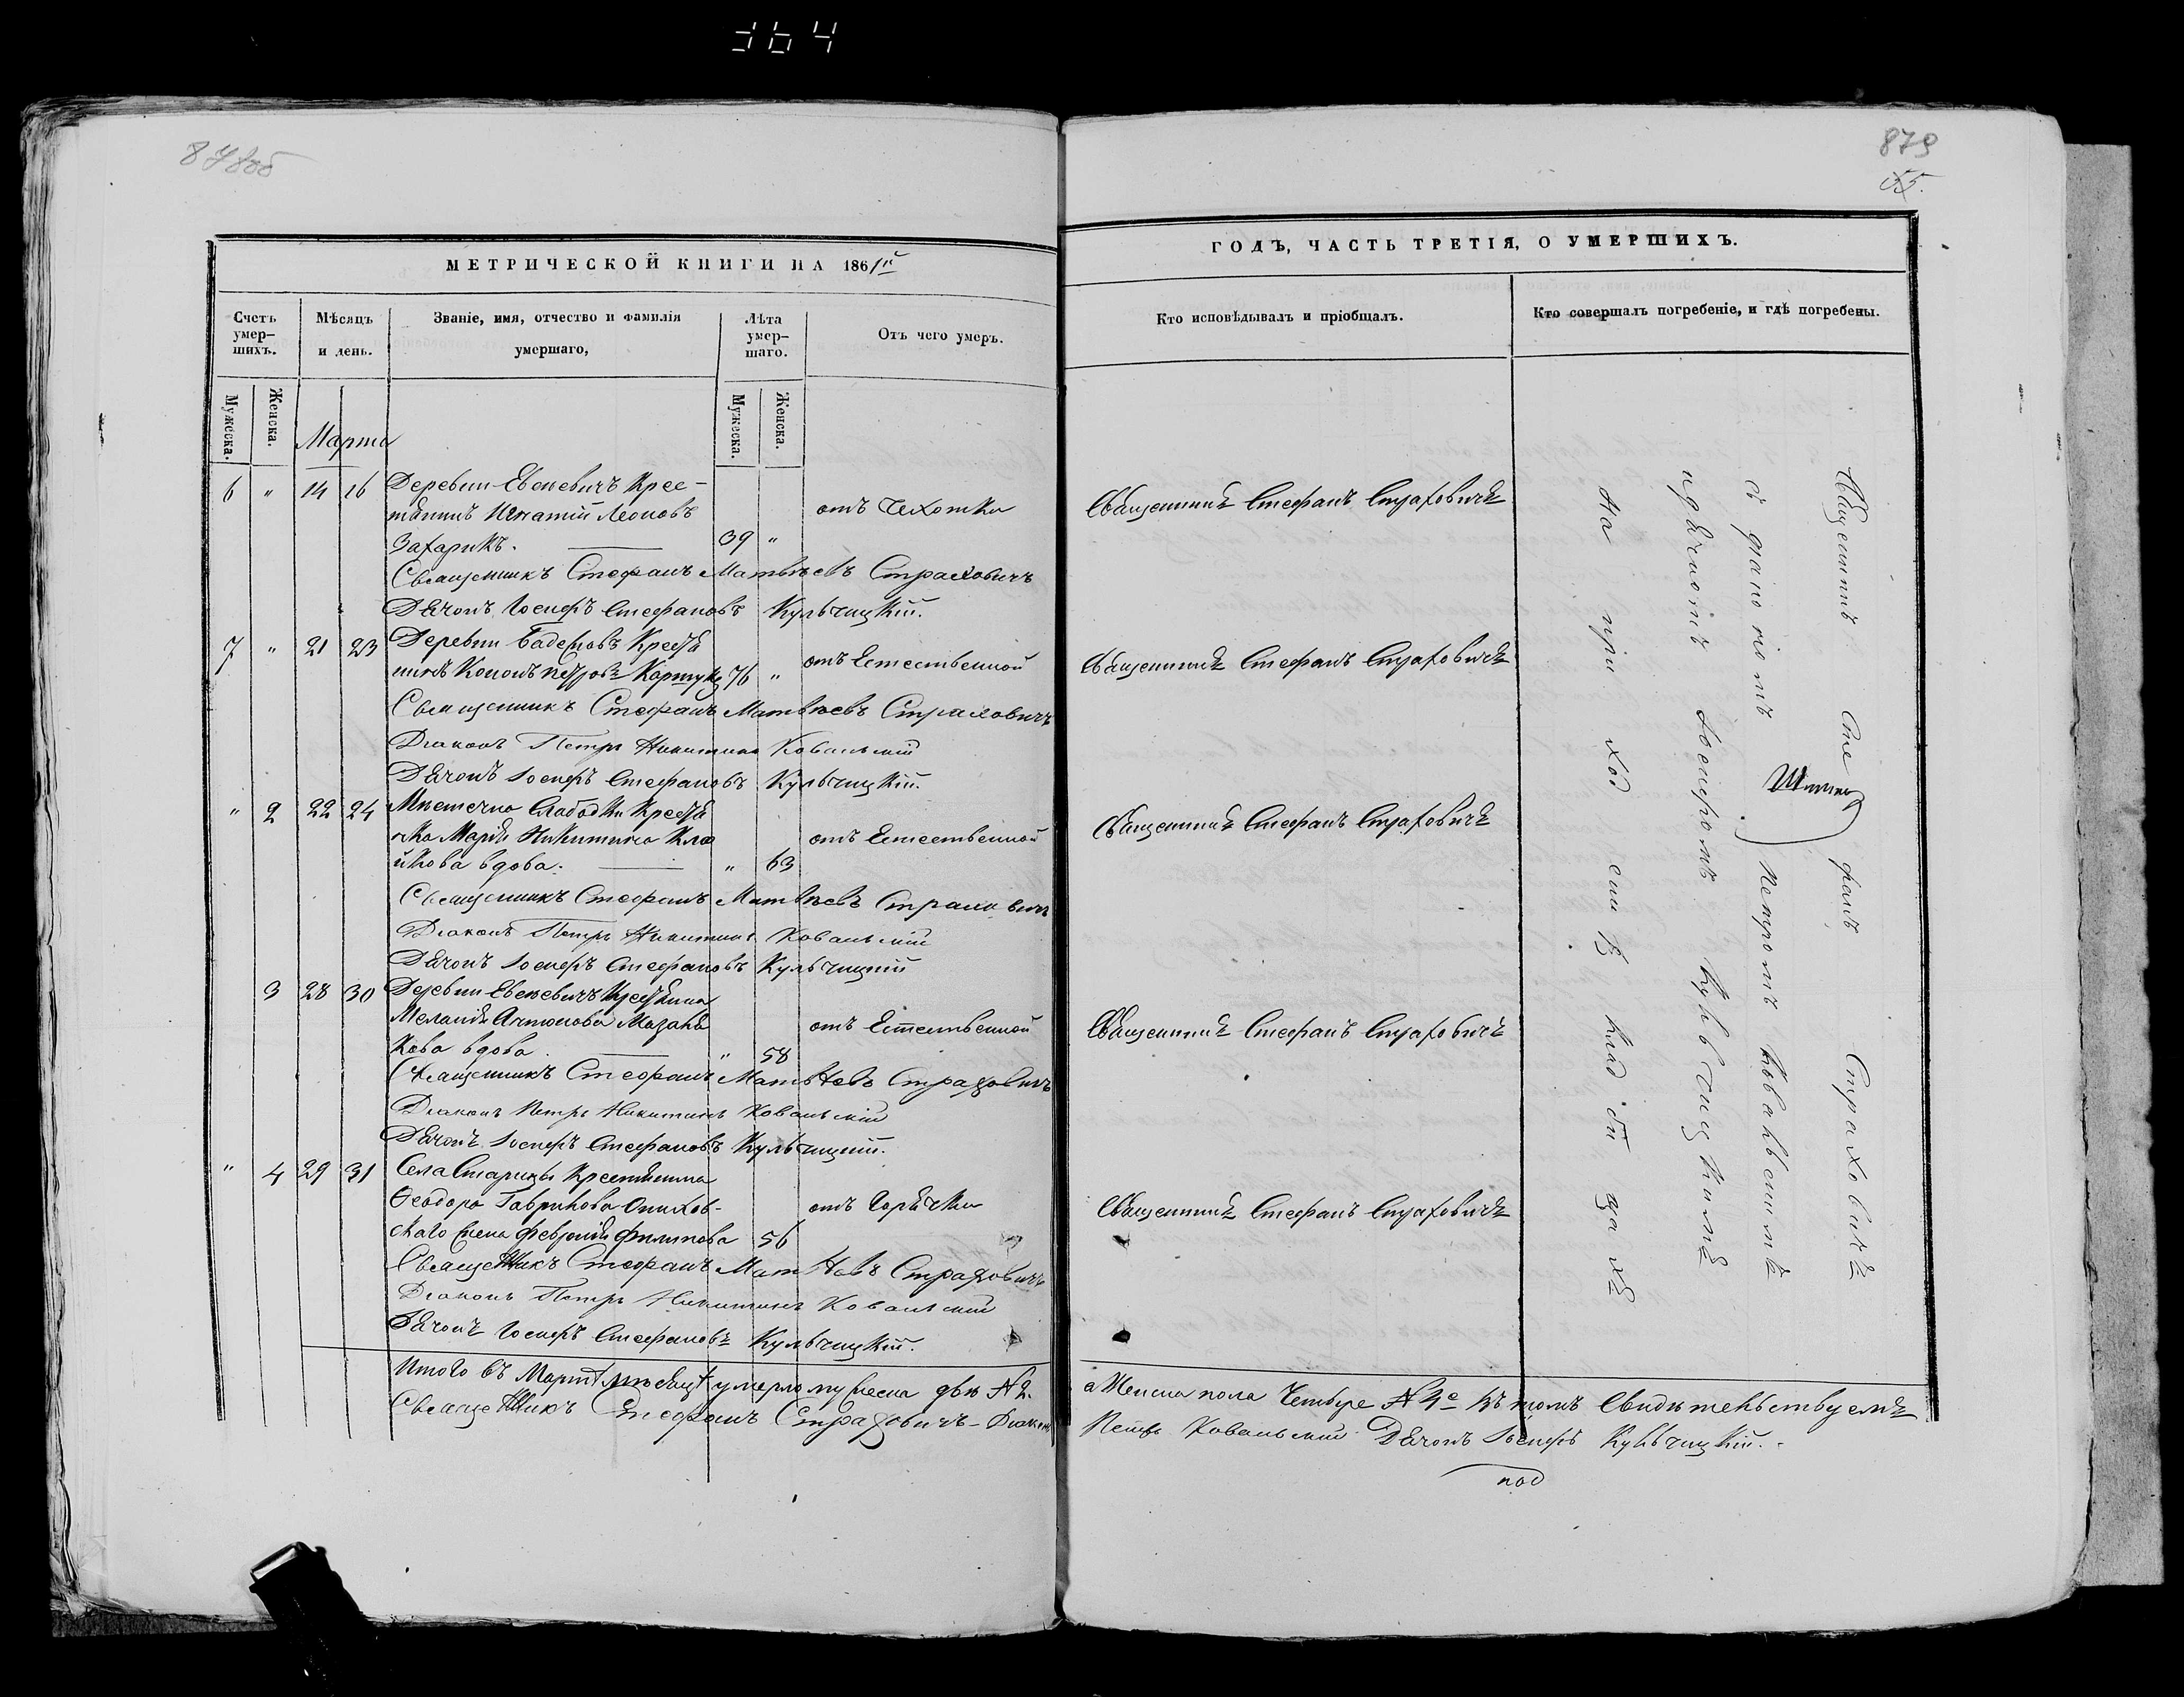 364
878об
МЕТРИЧЕСКОЙ КНИГИ НА 1861й
Счетъ умер-
шихъ.
Мѣсяцъ
и день.
Званіе, имя, отчество и фамилія
умершаго,
Лѣта
умер-
шаго.
Отъ чего умеръ.
Мужеска.
Женска.
Мужеска.
Женска.
Марта
6 " 14 16 Деревни Евсевичъ Крес-
тянинъ Игнатій Леоновъ отъ Чехотки
Захарикъ. 39 "
Священникъ Стефанъ Матвѣевъ Страховичъ
Дячокъ Іосифъ Стефановъ Кульчицкій.
7 " 21 23 Деревни Крестя
нинъ Кононъ Петровъ 76 " отъ Естественной
Священникъ Стефанъ Матвѣевъ Страховичъ
Діаконъ Петръ Никитинъ Ковальскій
Дячокъ Іосифъ Стефановъ Кульчицкій.
" 2 22 24 Мѣстечка Слободки Крестя
нка Марія Никитина отъ Естественной
вдова. " 63
Священникъ Стефанъ Матвѣевъ Страховичъ
Діаконъ Петръ Никитинъ Ковальскій
Дячокъ Іосифъ Стефановъ Кульчицкій
3 28 30 Деревни Евсевичъ Крестянка
Меланія Антонова отъ Естественной
вдова. " 58
Священникъ Стефанъ Матвѣевъ Страховичъ
Діаконъ Петръ Никитинъ Ковальскій
Дячокъ Іосифъ Стефановъ Кульчицкій.
" 4 29 31 Села Старицы Крестянина
Феодора Гаврилова отъ Горячки
жена Февронія Филипова 56
Священникъ Стефанъ Матвѣевъ Страховичъ
Діаконъ Петръ Никитинъ Ковальскій
Дячокъ Іосифъ Стефановъ Кульчицкій.
Итого въ Мартѣ мѣсяцѣ умерло мужеска двѣ № 2.
Священникъ Стефанъ Страховичъ - Діаконъ
879
55.
ГОДЪ, ЧАСТЬ ТРЕТІЯ, О УМЕРШИХЪ.
Кто исповѣдывалъ и пріобщалъ.
Кто совершалъ погребеніе, и гдѣ погребены.
Священникъ Стефанъ Страховичъ
Священникъ Стефанъ Страховичъ
Священникъ Стефанъ Страховичъ
Священникъ Стефанъ Страховичъ
Священникъ Стефанъ Страховичъ
Священникъ Стефанъ Страховичъ
съ діакономъ Петромъ Ковальскимъ
и дячкомъ Іосифомъ Кульчицкимъ
на приходскихъ кладбищахъ
а Женска пола Четыре № 4е въ томъ Свидѣтельствуемъ
Петръ Ковальскій Дячокъ Іосифъ Кульчицкій.
под